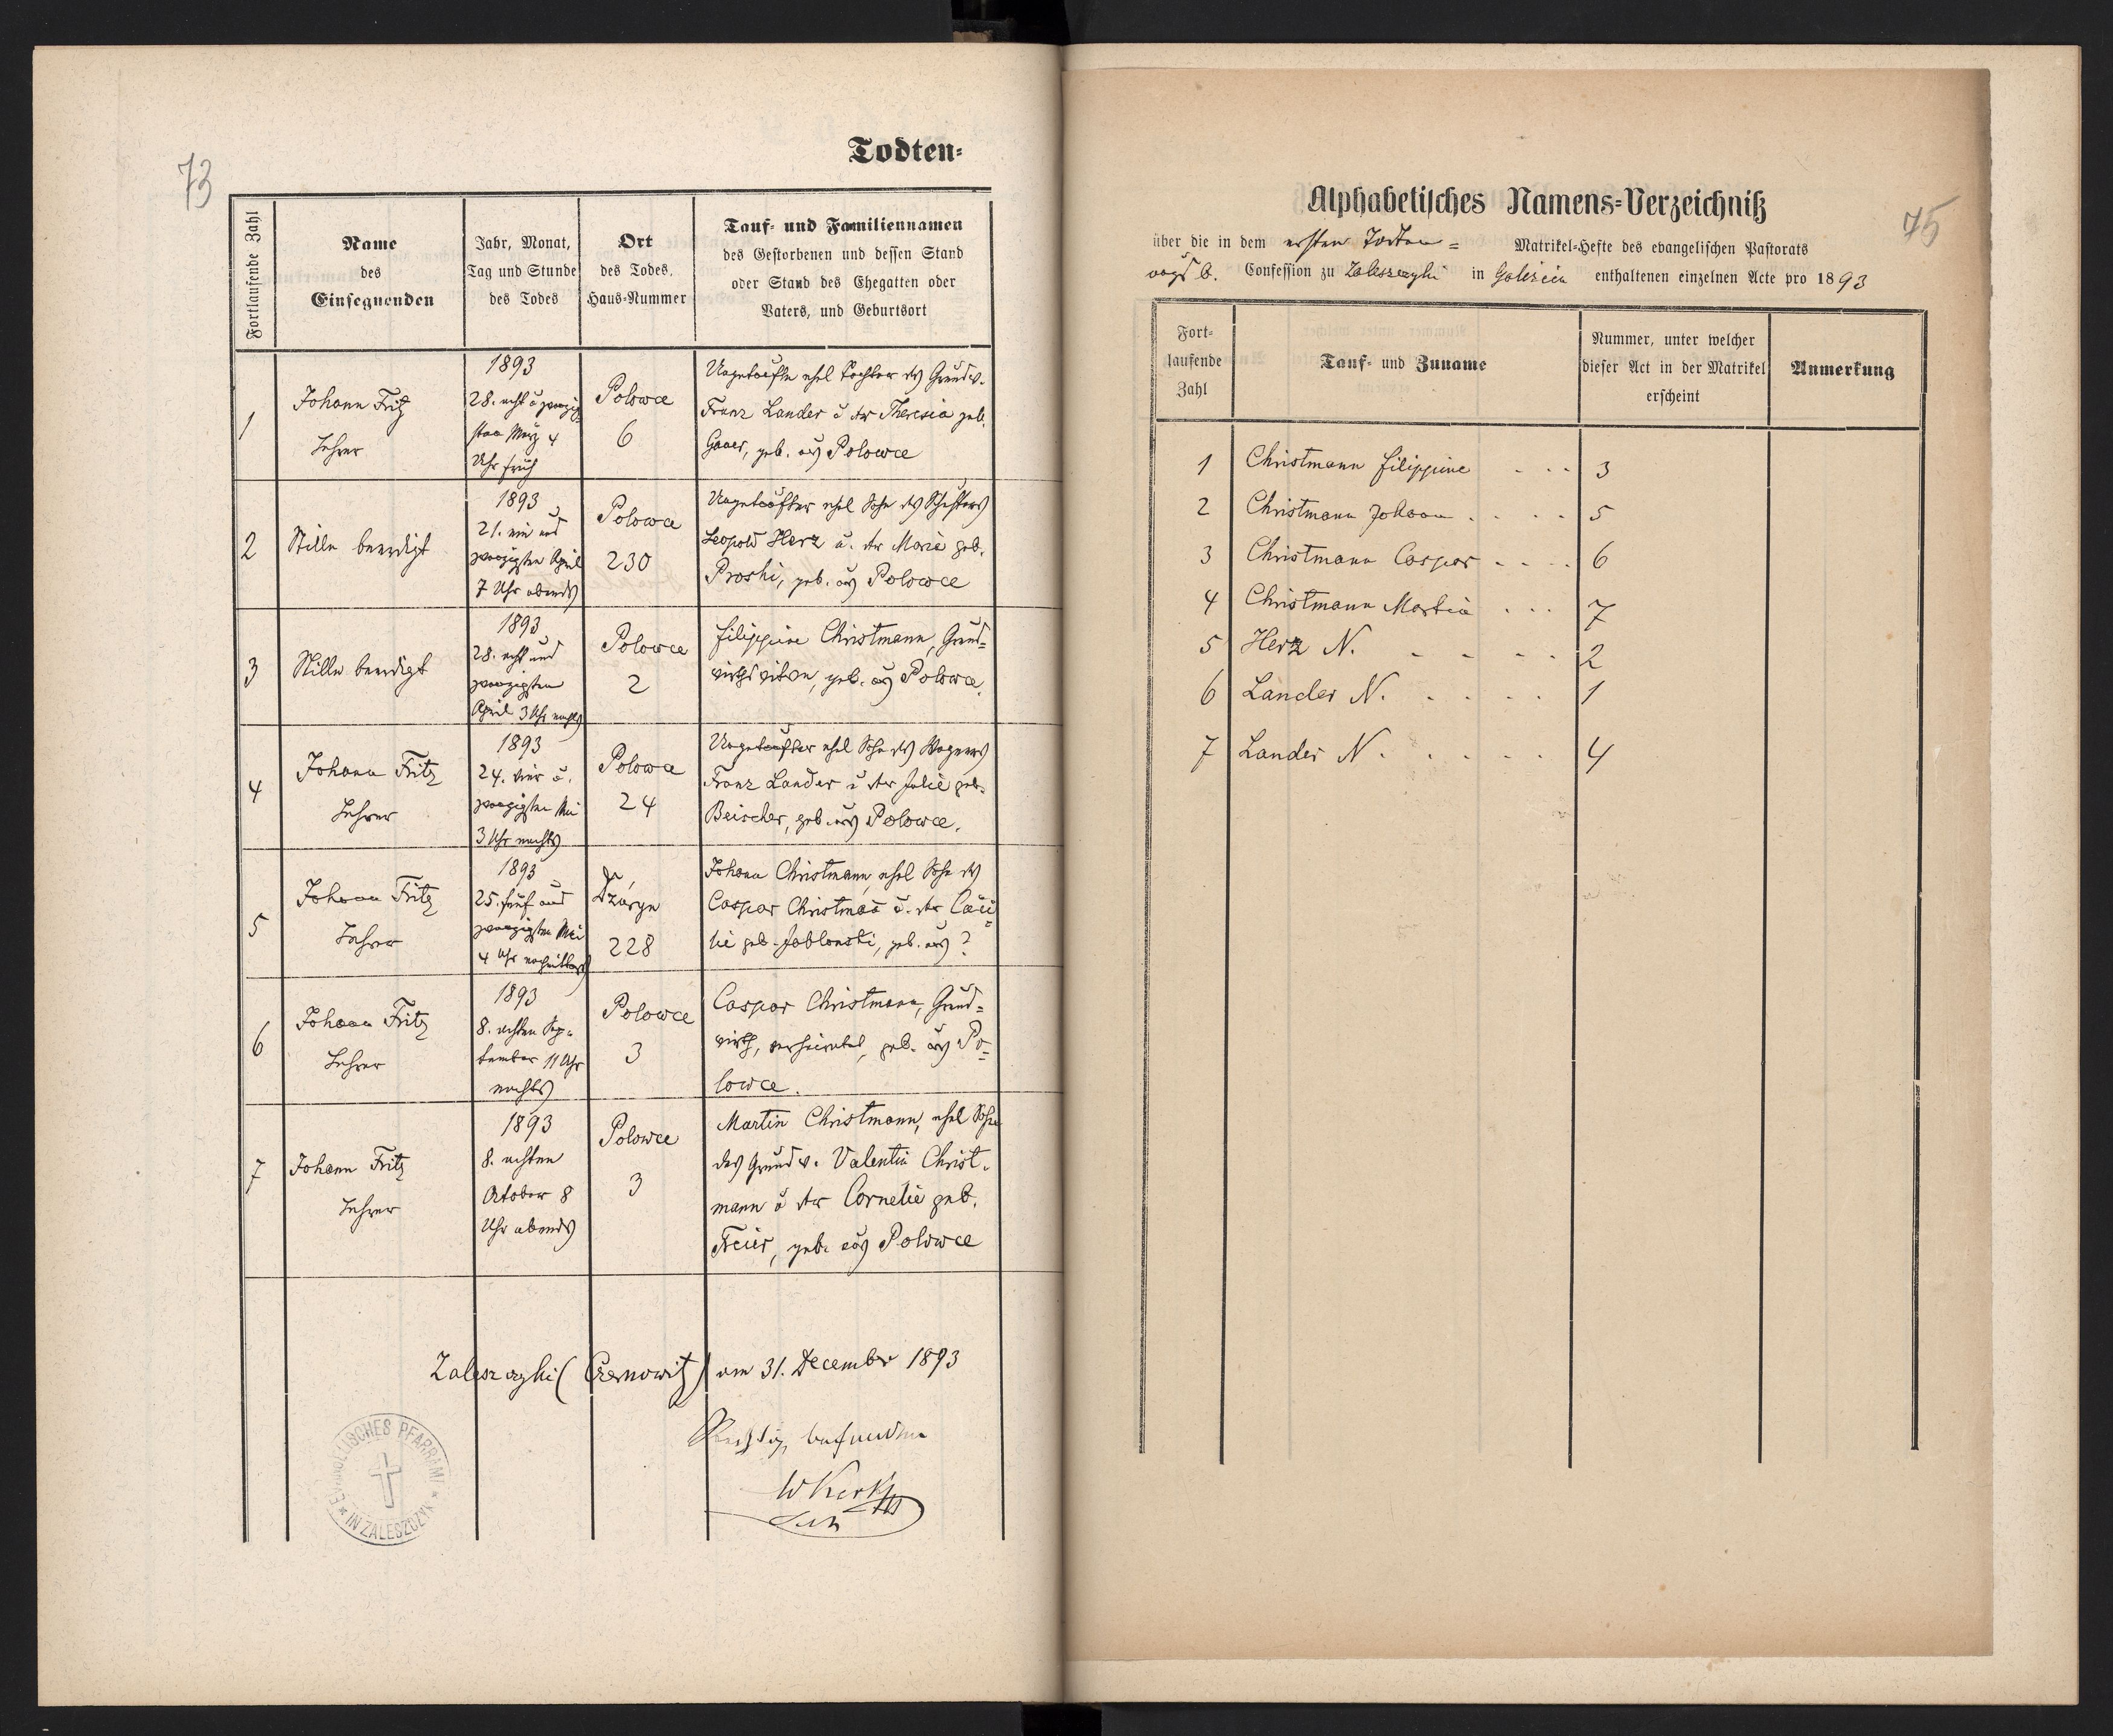 73
Todten-
Fortlaufende Zahl
Name
des
Einsegnenden
Jahr, Monat,
Tag und Stunde
des Todes
Ort
des Todes,
Haus-Nummer
Tauf- und Familiennamen
des Gestorbenen und dessen Stand
oder Stand des Ehegatten oder
Vaters, und Geburtsort
1
Johann Fritz
Lehrer
1893
28. acht u zwanzig-
sten März 4
Uhr früh
Polowce
6
Ungetaufte ehel Tochter des Grundw.
Franz Lander u der Theresia geb.
Gaar, geb. aus Polowce
2
Stille beerdigt
1893
21. ein und
zwanzigsten April
7 Uhr abends
Polowce
230
Ungetaufter ehel Sohn des Schusters
Leopold Herz u. der Marie geb.
Proski, geb. aus Polowce
3
Stille beerdigt
1893
28. acht und
zwanzigsten
April 3 Uhr nachts
Polowce
2
Filippine Christmann, Grund-
wirthswitwe, geb. aus Polowce.
4
Johann Fritz
Lehrer
1893
24. vier u.
zwanzigsten Mai
3 Uhr nachts
Polowce
24
Ungetaufter ehel Sohn des Wagners
Franz Lander u der Julie geb.
Beischer, geb. aus Polowce.
5
Johann Fritz
Lehrer
1893
25. fünf und
zwanzigsten Mai
4 Uhr nachmittags
228
Johann Christmann, ehel Sohn des
Caspar Christmañ u. der Cäci-
lie geb. Jablonski, geb. aus ?
6
Johann Fritz
Lehrer
1893
8. achten Sep-
tember 11 Uhr
nachts
Polowce
3
Caspar Christmann, Grund-
wirth, verheiratet, geb. aus Po-
lowce.
7
Johann Fritz
Lehrer
1893
8. achten
October 8
Uhr abends
Polowce
3
Martin Christmann, ehel Sohn
des Grundw. Valentin Christ-
mann u der Cornelie geb.
Freier, geb. aus Polowce
Zaleszczyki (Czernowitz) am 31. December 1893
Richtig befunden
EVANGELISCHES PFARRAMT
IN ZALESZCZYK
75
Alphabetisches Namens-Verzeichniß
über die in dem ersten Todten- Matrikel-Hefte des evangelischen Pastorats
augsb. Confession zu Zaleszczyki in Galizien enthaltenen einzelnen Acte pro 1893
Fort-
laufende
Zahl
Tauf- und Zuname
Nummer, unter welcher
dieser Act in der Matrikel
erscheint
Anmerkung
1 Christmann Filippine . . . 3
2 Christmann Johann . . . . 5
3 Christmann Caspar . . . . 6
4 Christmann Martin . . . 7
5 Herz N. . . . . 2
6 Lander N. . . . . 1
7 Lander N. . . . . 4